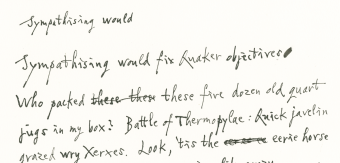 Sympathising would
Sympathising would fix Quaker objectives
Who packed these five dozen old quart
jugs in my box? Battle of Thermopylae: Quick javelin
grazed wry Xerxes. Look, 'tis the eerie horse